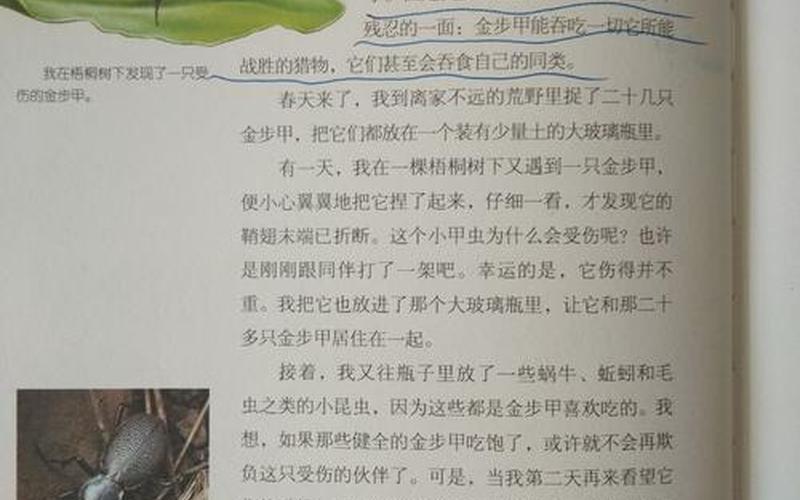 残忍的一面：金步甲能吞吃一切它所能
战胜的猎物，它们甚至会吞食自己的同类。
我在梧桐树下发现了一只受
伤的金步甲。
春天来了，我到离家不远的荒野里捉了二十几只
金步甲，把它们都放在一个装有少量土的大玻璃瓶里。
有一天，我在一棵梧桐树下又遇到一只金步甲，
便小心翼翼地把它捏了起来，仔细一看，才发现它的
鞘翅末端已折断。这个小甲虫为什么会受伤呢？也许
是刚刚跟同伴打了一架吧。幸运的是，它伤得并不
重。我把它也放进了那个大玻璃瓶里，让它和那二十
多只金步甲居住在一起。
接着，我又往瓶子里放了一些蜗牛、蚯蚓和毛
虫之类的小昆虫，因为这些都是金步甲喜欢吃的。我
想，如果那些健全的金步甲吃饱了，或许就不会再欺
负这只受伤的伙伴了。可是，当我第二天再来看望它